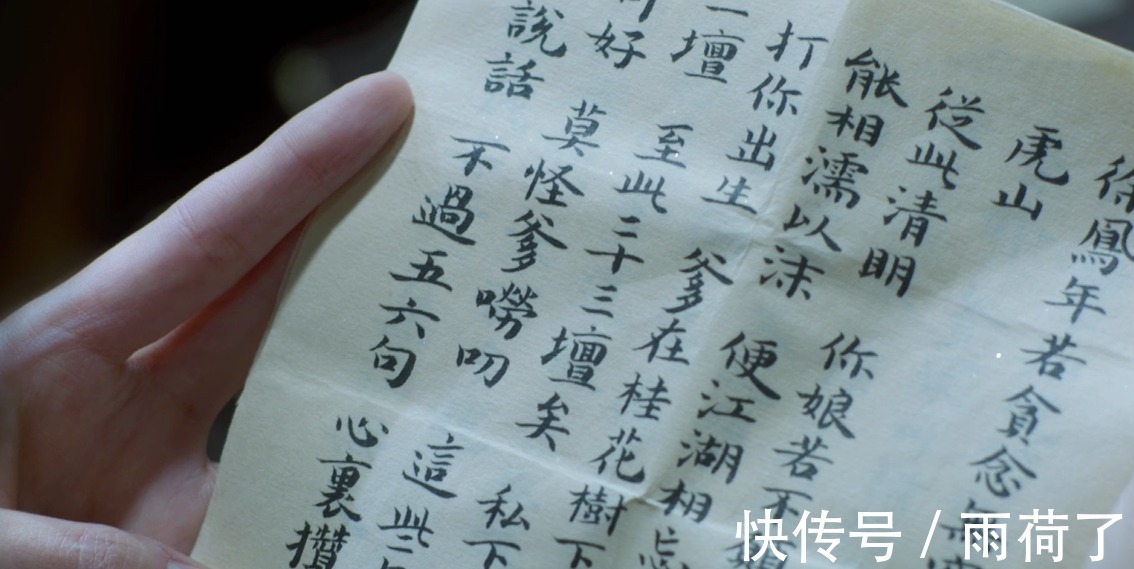 徐鳳年若貪念
虎山
從此清明 你娘若不
能相濡以沫 便江湖相忘
打你出生 爹在桂花樹下
一壇 至此三十三壇矣 私下
好 莫怪爹嘮叨 這些
說話 不過五六句 心裏攢
快传号 / 雨荷了